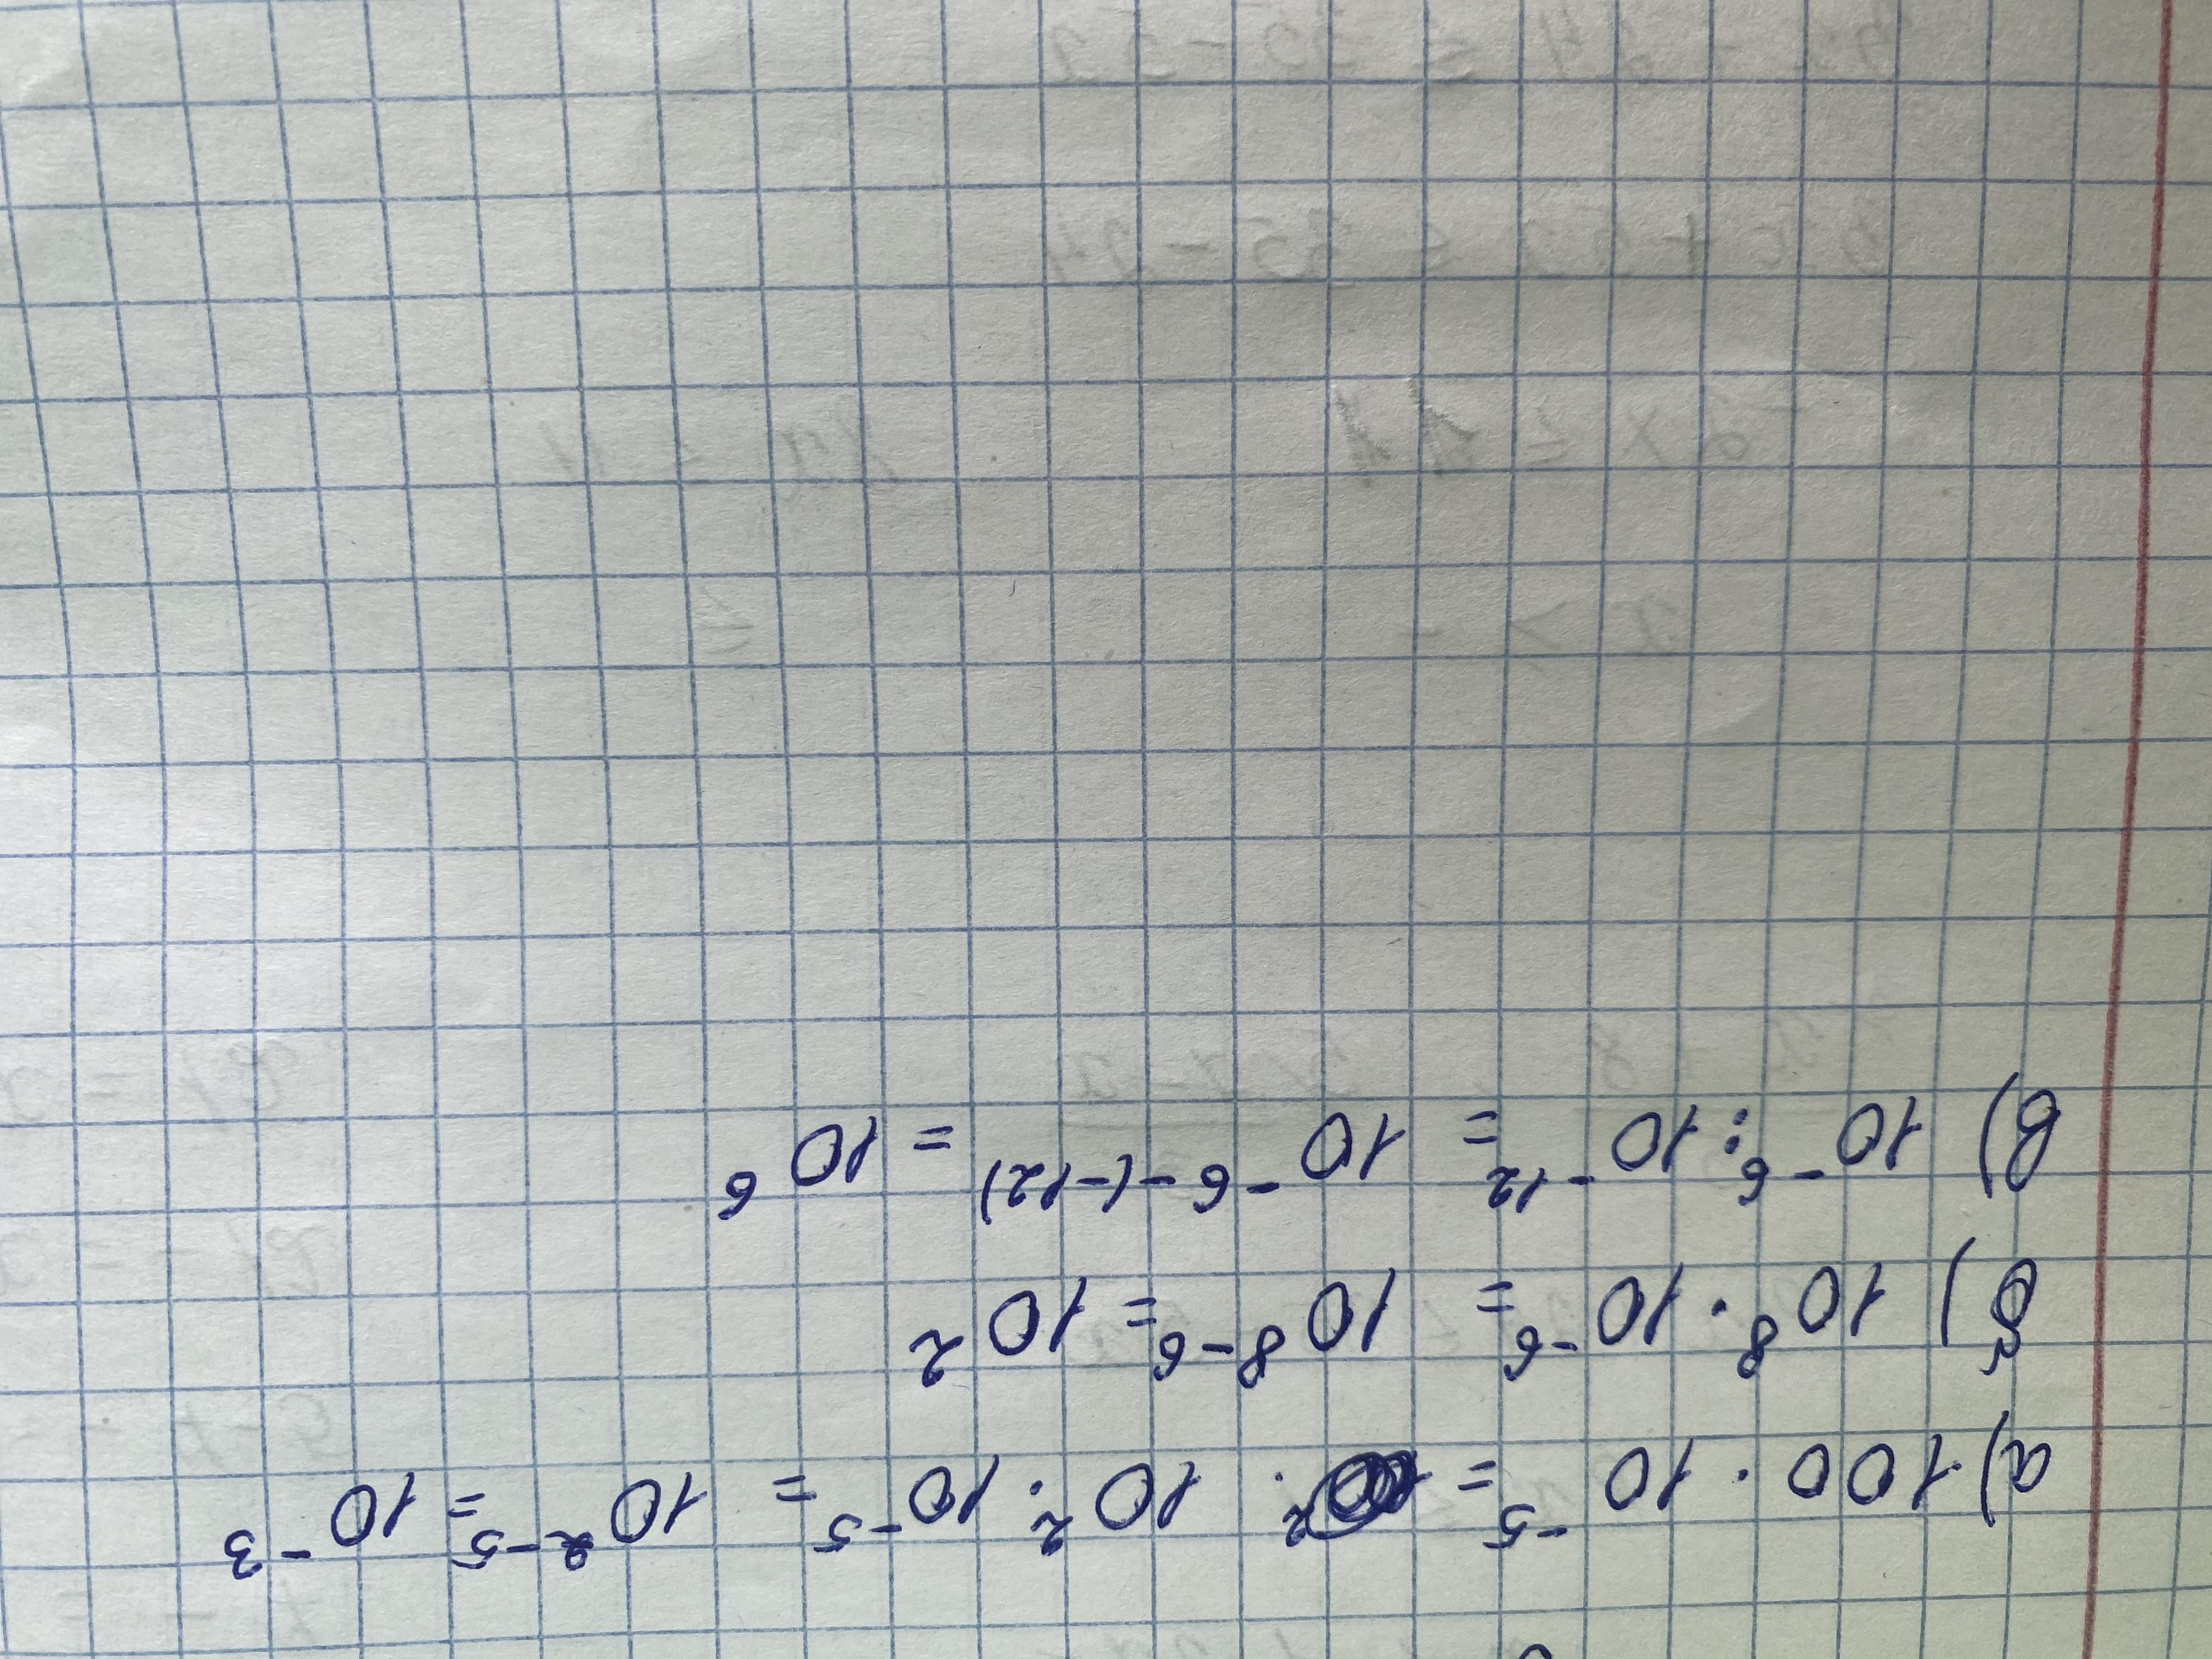 а) 100 · 10⁻⁵ = 10² · 10⁻⁵ = 10²⁻⁵ = 10⁻³
б) 10⁸ · 10⁻⁶ = 10⁸⁻⁶ = 10²
в) 10⁻⁶ : 10⁻¹² = 10⁻⁶⁻⁽⁻¹²⁾ = 10⁶